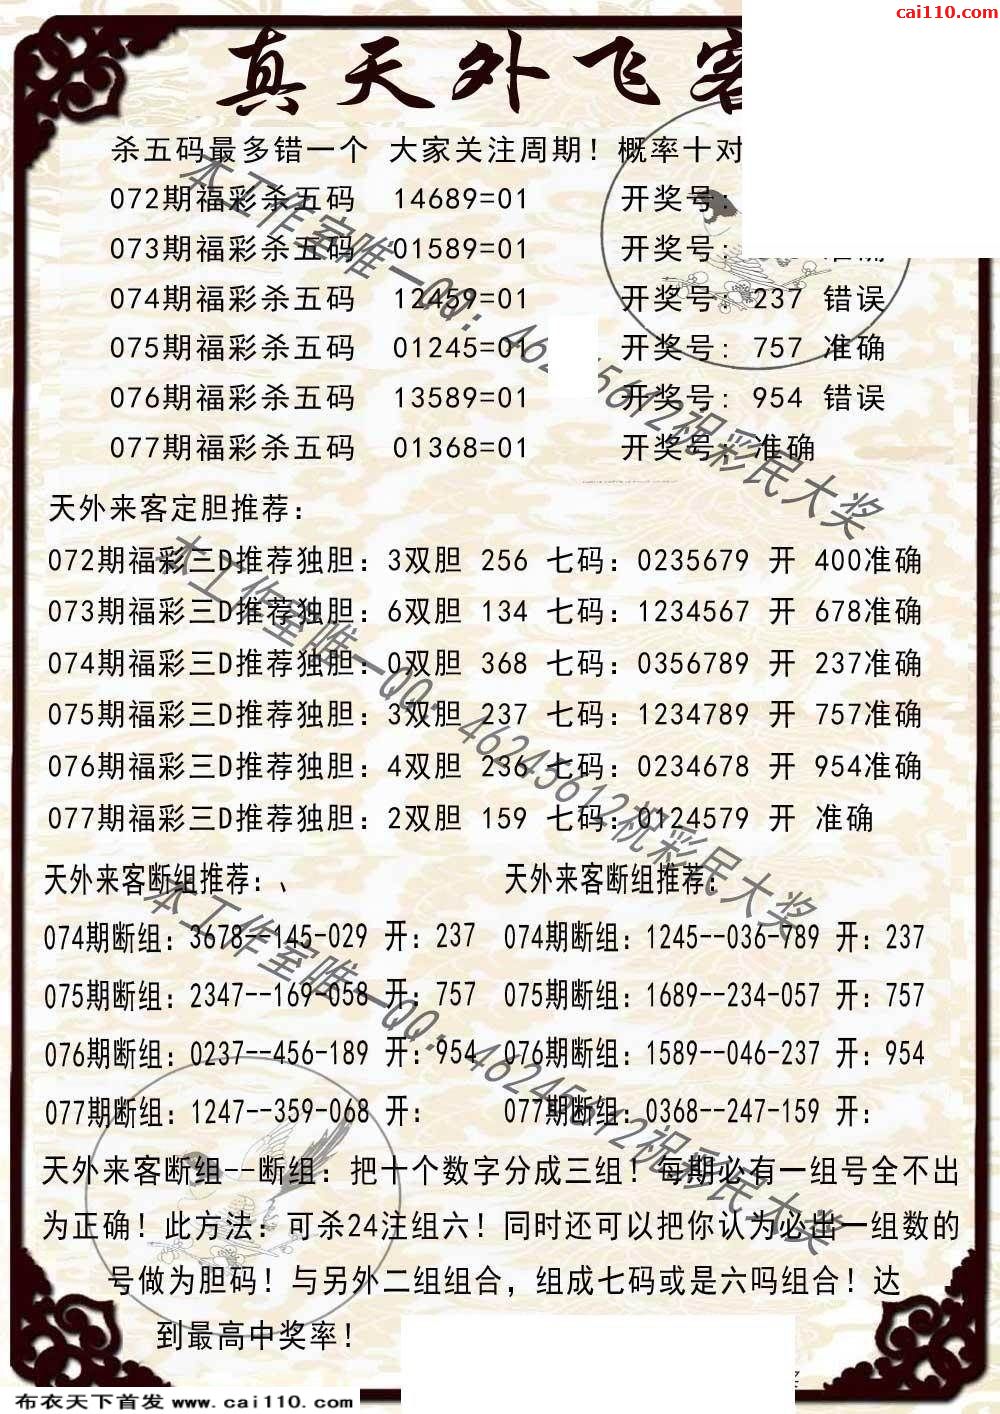 cai110.com
真天外飞客
杀五码最多错一个 大家关注周期！概率十对
072期福彩杀五码 14689=01 开奖号:
073期福彩杀五码 01589=01 开奖号: 准确
074期福彩杀五码 12459=01 开奖号: 237 错误
075期福彩杀五码 01245=01 开奖号: 757 准确
076期福彩杀五码 13589=01 开奖号: 954 错误
077期福彩杀五码 01368=01 开奖号: 准确
天外来客定胆推荐:
072期福彩三D推荐独胆: 3双胆 256 七码: 0235679 开 400准确
073期福彩三D推荐独胆: 6双胆 134 七码: 1234567 开 678准确
074期福彩三D推荐独胆: 0双胆 368 七码: 0356789 开 237准确
075期福彩三D推荐独胆: 3双胆 237 七码: 1234789 开 757准确
076期福彩三D推荐独胆: 4双胆 236 七码: 0234678 开 954准确
077期福彩三D推荐独胆: 2双胆 159 七码: 0124579 开 准确
天外来客断组推荐:、 天外来客断组推荐:
074期断组: 3678--145-029 开: 237 074期断组: 1245--036-789 开: 237
075期断组: 2347--169-058 开: 757 075期断组: 1689--234-057 开: 757
076期断组: 0237--456-189 开: 954 076期断组: 1589--046-237 开: 954
077期断组: 1247--359-068 开: 077期断组: 0368--247-159 开:
天外来客断组--断组: 把十个数字分成三组！每期必有一组号全不出
为正确！此方法: 可杀24注组六！同时还可以把你认为必出一组数的
号做为胆码！与另外二组组合，组成七码或是六吗组合！达
到最高中奖率！
本工作室唯一QQ: 46245612祝彩民大奖
本工作室唯一QQ: 46245612祝彩民大奖
本工作室唯一QQ: 46245612祝彩民大奖
布衣天下首发 www.cai110.com